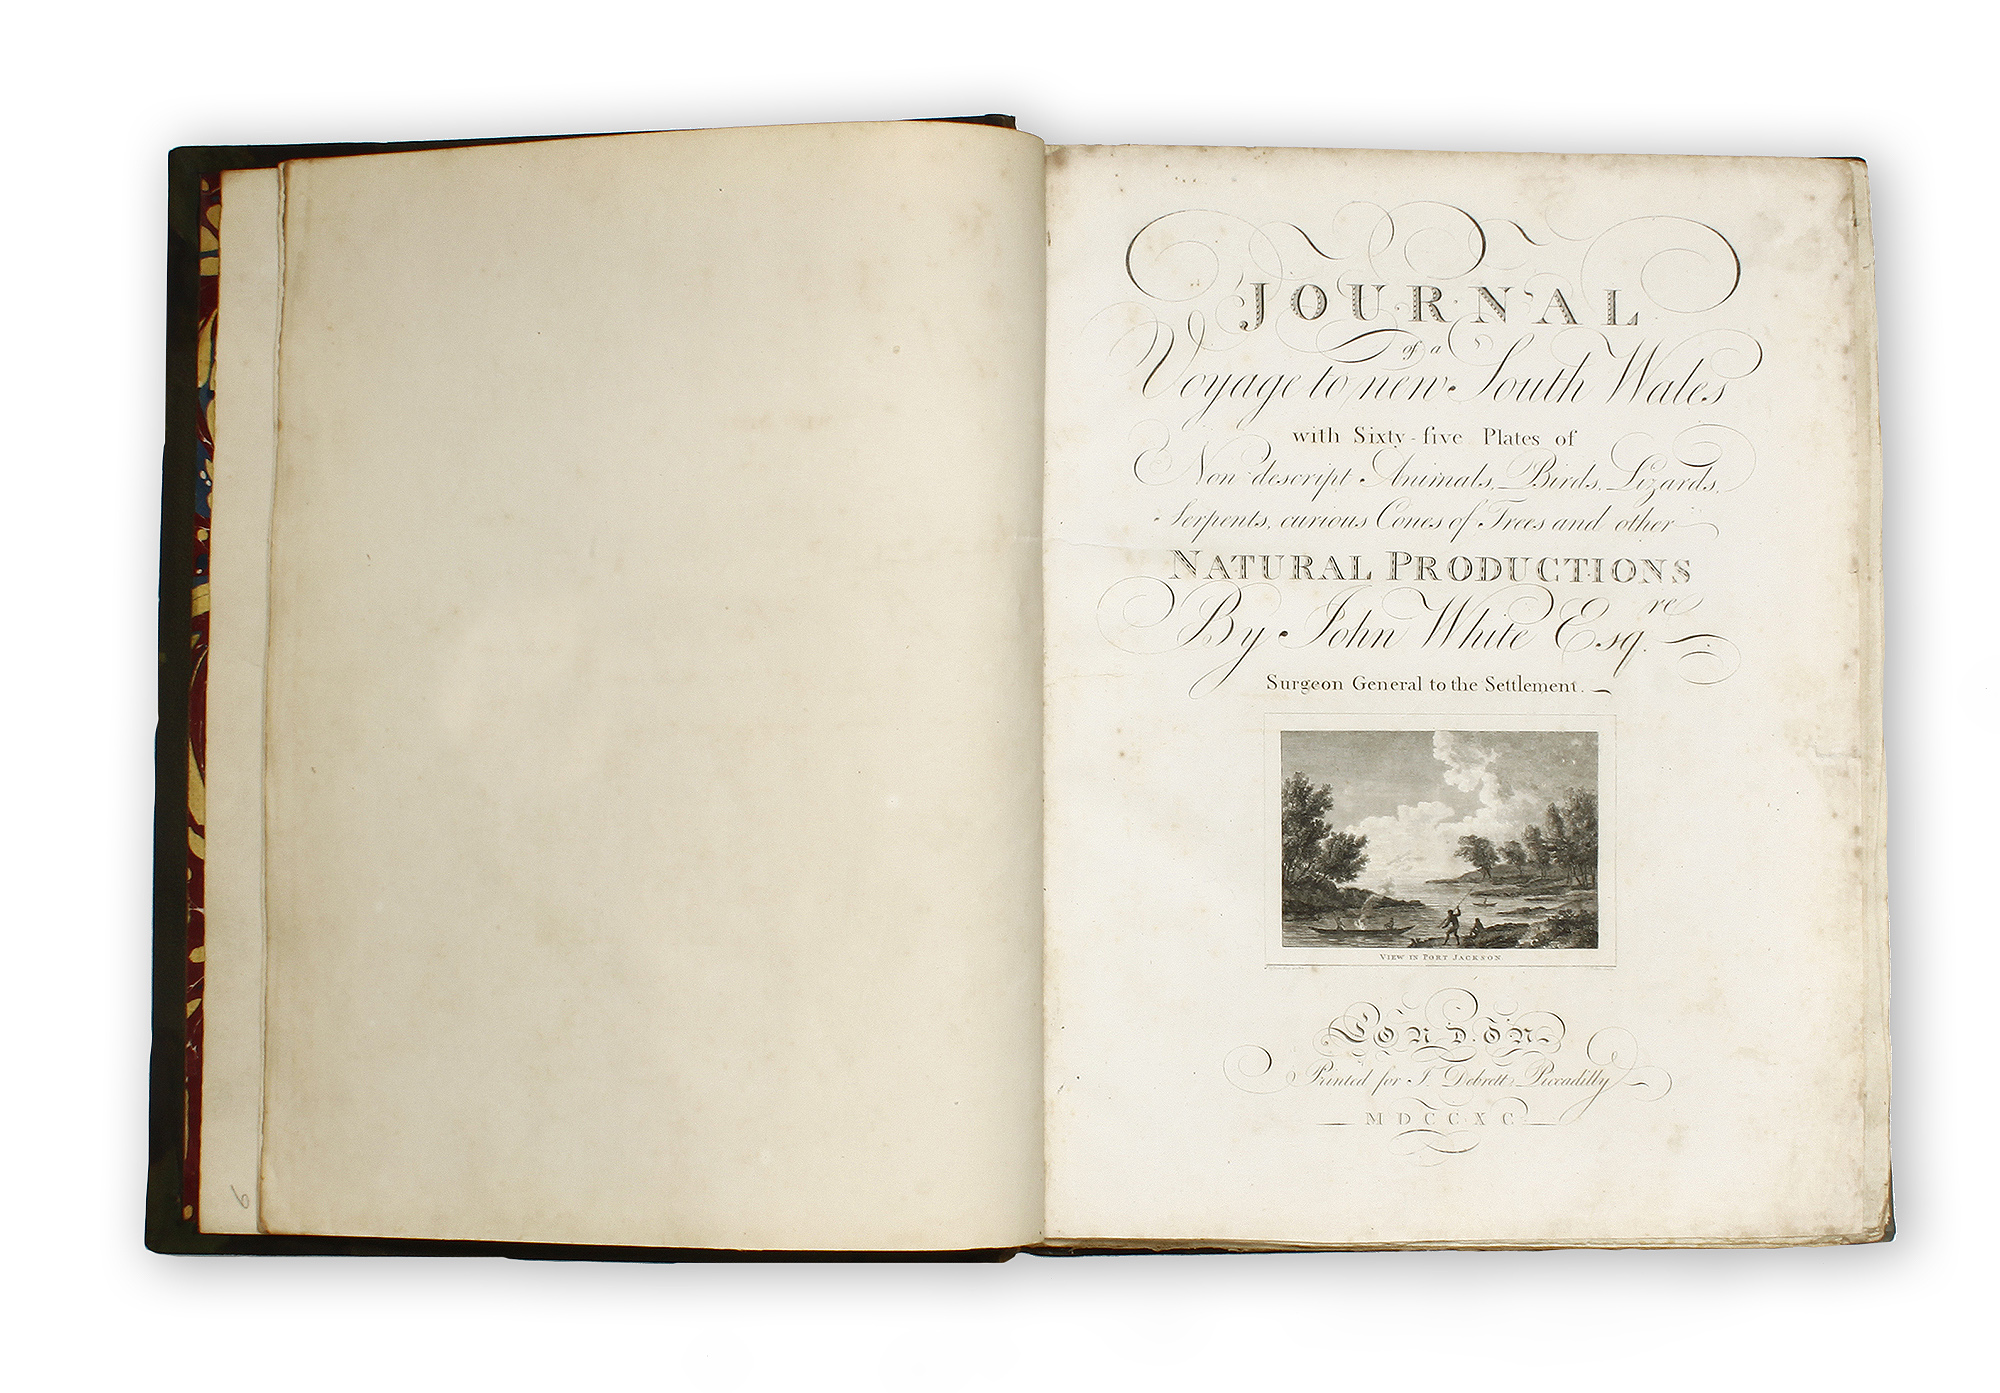 JOURNAL
of a
Voyage to new South Wales
with Sixty-five Plates of
Non descript Animals, Birds, Lizards,
Serpents, curious Cones of Trees and other
NATURAL PRODUCTIONS
By John White Esqre.
Surgeon General to the Settlement.
VIEW IN PORT JACKSON
LONDON
Printed for J. Debrett Piccadilly
MDCCXC